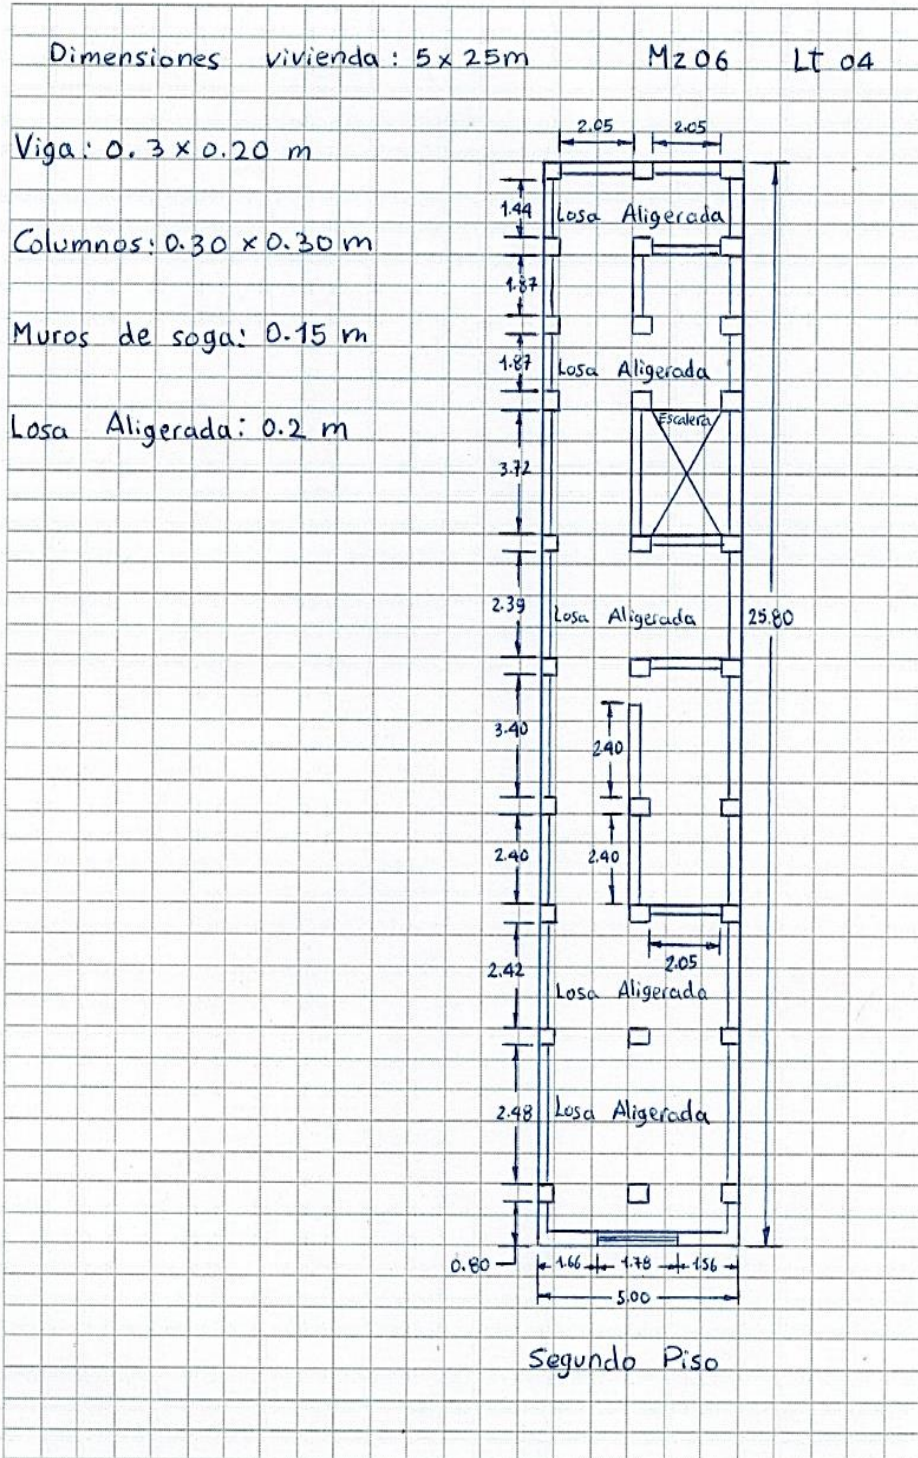 Dimensiones vivienda: 5 x 25m Mz 06 Lt 04
Viga: 0.3 x 0.20 m
Columnos: 0.30 x 0.30 m
Muros de soga: 0.15 m
Losa Aligerada: 0.2 m
2.05 2.05
1.44 Losa Aligerada
1.87
1.87 Losa Aligerada
Escalera
3.72
2.39 Losa Aligerada 25.80
3.40
2.40
2.40 2.40
2.05
2.42
Losa Aligerada
2.48 Losa Aligerada
0.80 1.66 1.78 1.56
5.00
Segundo Piso